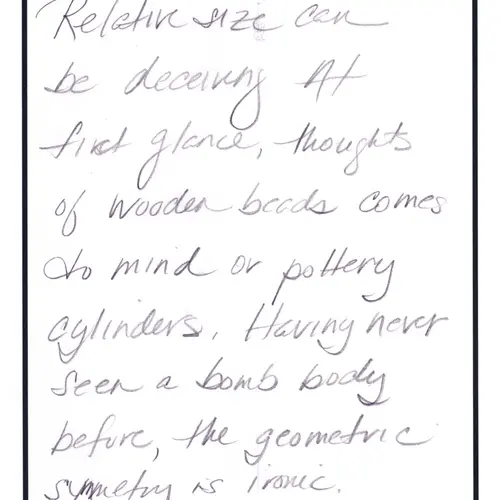 Relative size can
be deceiving At
first glance, thoughts
of wooden beads comes
to mind or pottery
cylinders. Having never
seen a bomb body
before, the geometric
symmetry is ironic.